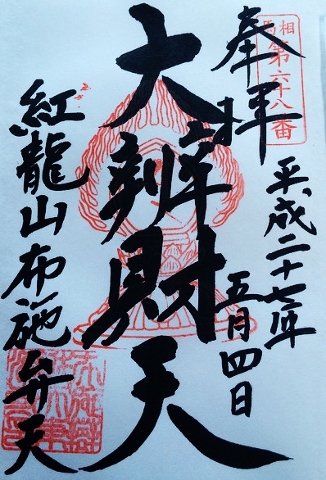 奉拝
相
第六十八番
平成二十七年
五月四日
大辨財天
紅龍山布施弁天